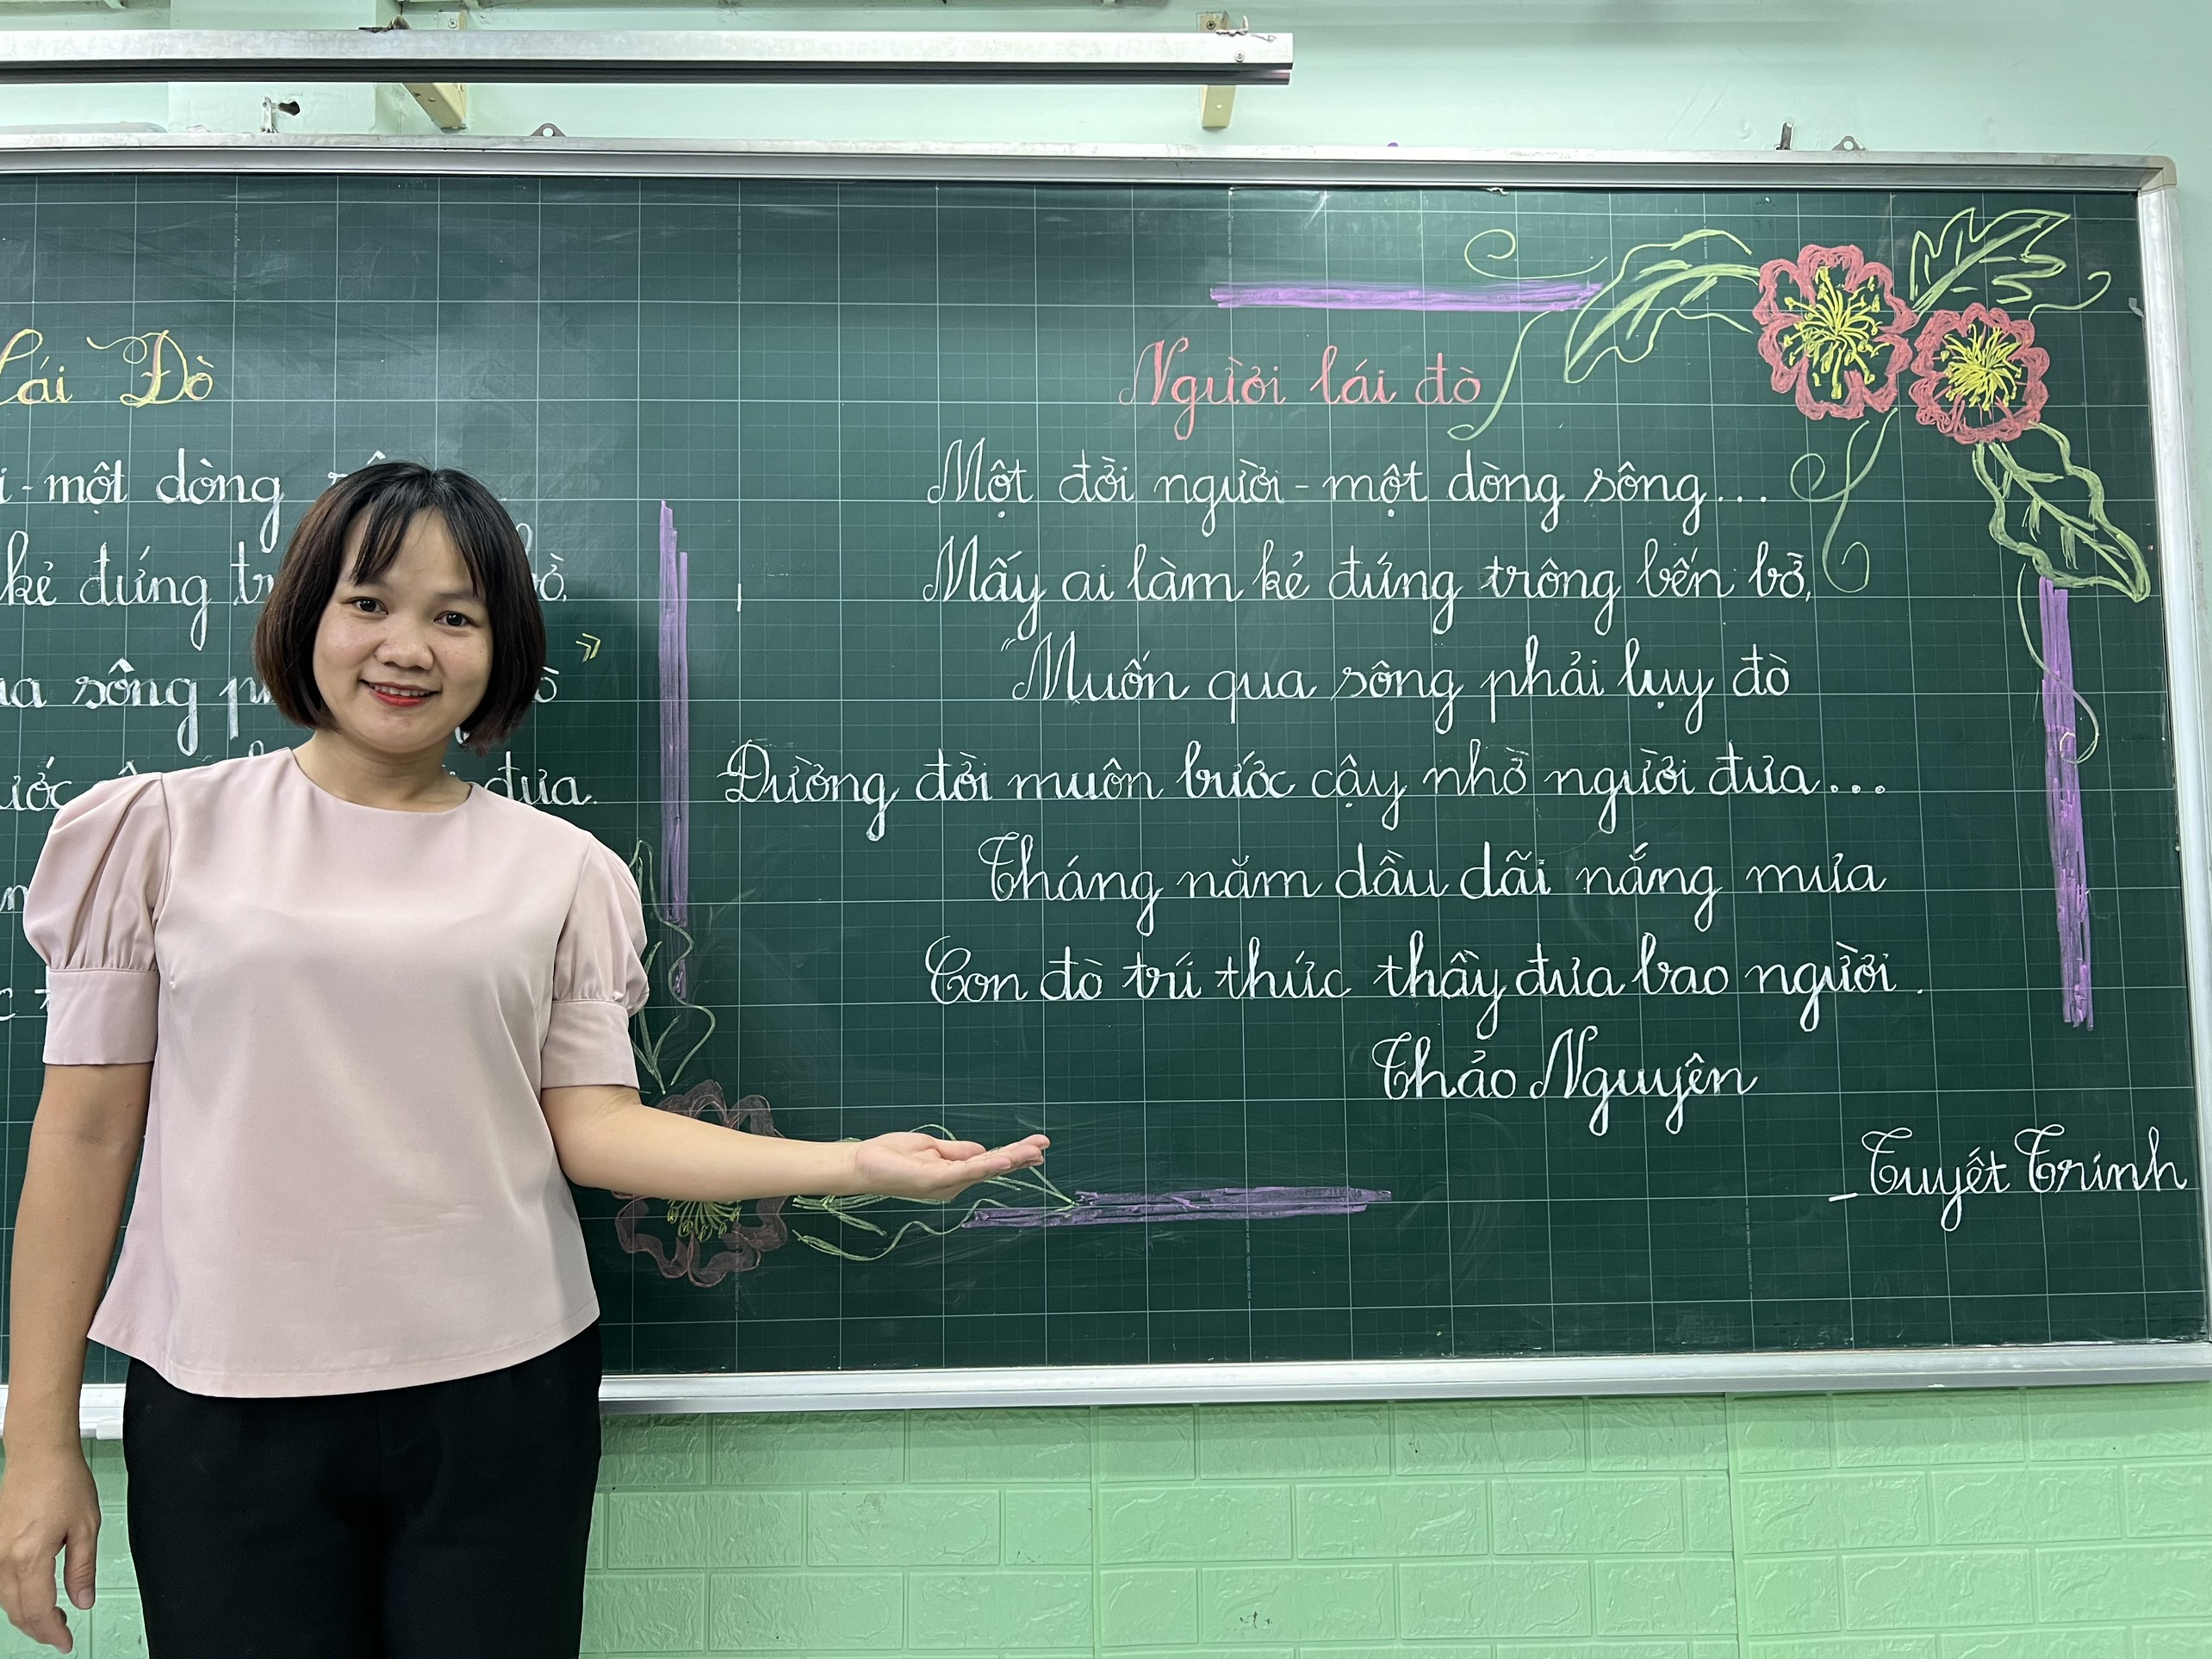 Lái Đò
- một dòng
kẻ đứng
sông
đưa.
Người lái đò
Một đời người - một dòng sông...
Mấy ai làm kẻ đứng trông bến bờ,
"Muốn qua sông phải lụy đò
Đường đời muôn bước cậy nhờ người đưa...
Tháng năm dầu dãi nắng mưa
Con đò trí thức thầy đưa bao người.
Thảo Nguyên
- Tuyết Trinh